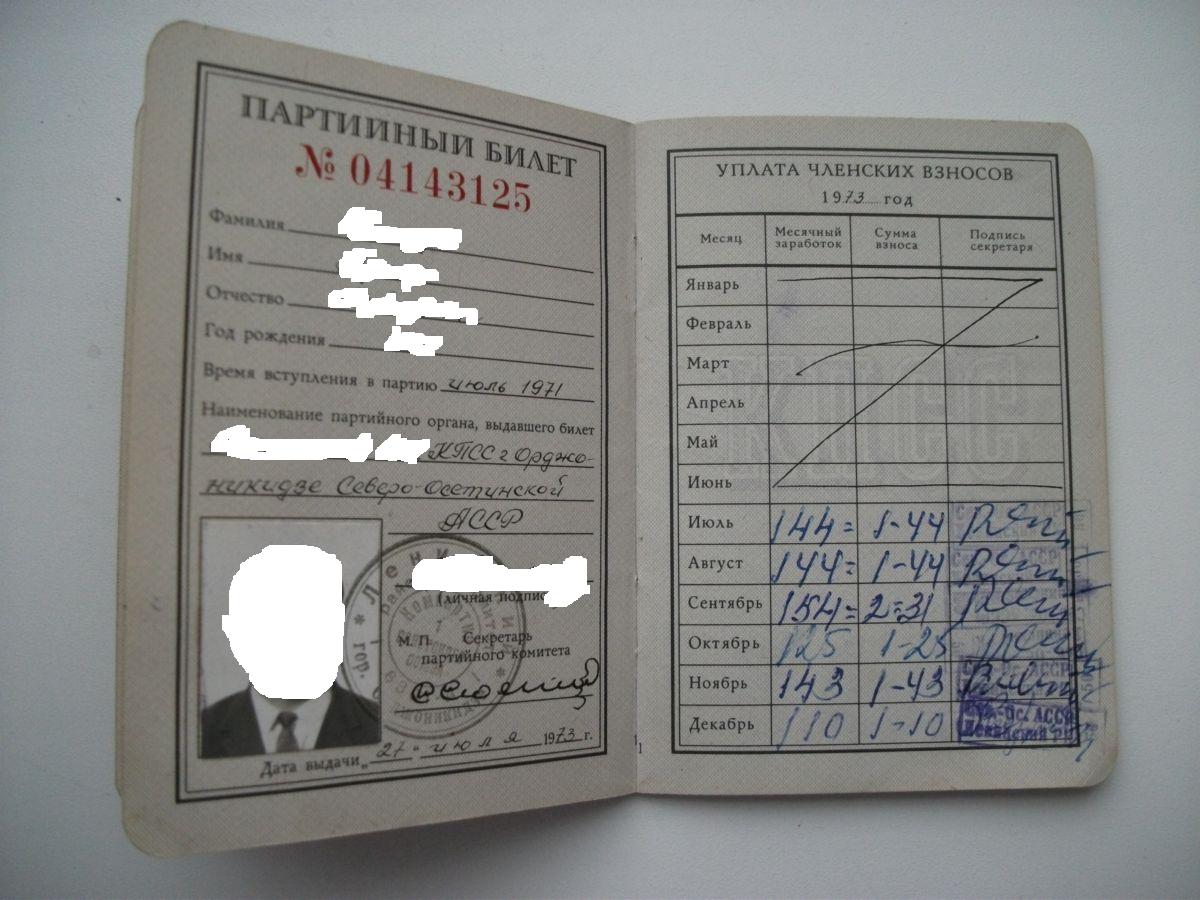 ПАРТИЙНЫЙ БИЛЕТ
№ 04143125
Фамилия
Имя
Отчество
Год рождения
Время вступления в партию июль 1971
Наименование партийного органа, выдавшего билет
КПСС г Орджо-
никидзе Северо-Осетинской
АССР
(личная подпис
М. П. Секретарь
партийного комитета
Дата выдачи „27“ июля 1973 г.
УПЛАТА ЧЛЕНСКИХ ВЗНОСОВ
1973 год
Месяц Месячный заработок Сумма взноса Подпись секретаря
Январь
Февраль
Март
Апрель
Май
Июнь
Июль 144= 1-44
Август 144= 1-44
Сентябрь 154= 2=31
Октябрь 125 1-25
Ноябрь 143 1-43
Декабрь 110 1-10
КПСС
1